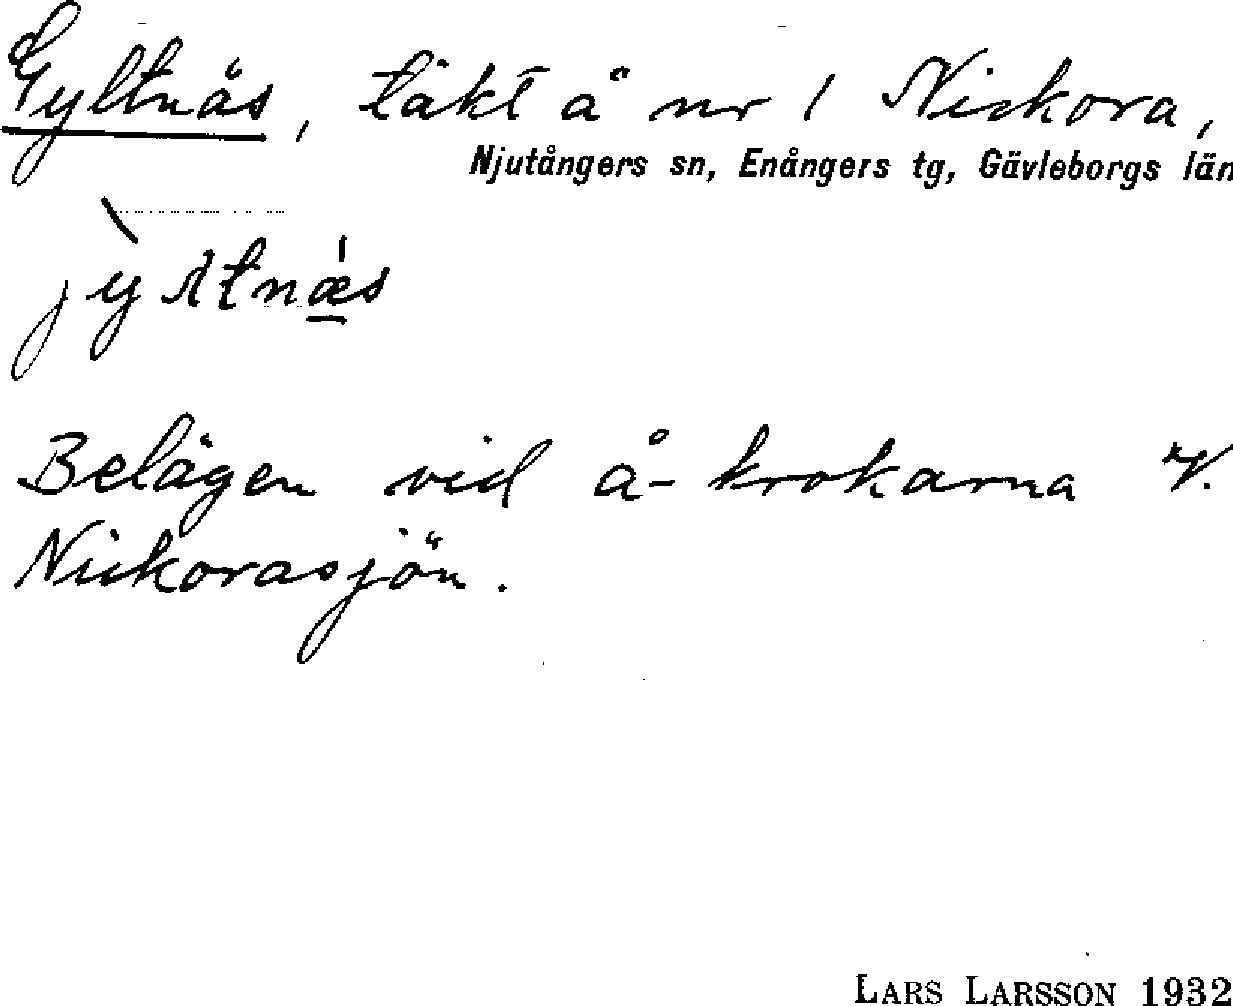 Gyltnäs, täkt å nr 1 Nickora,
Njutångers sn, Enångers tg, Gävleborgs län
jỳltnæ̀s
Belägen vid å-krokarna V.
Nickorasjön.
LARS LARSSON 1932